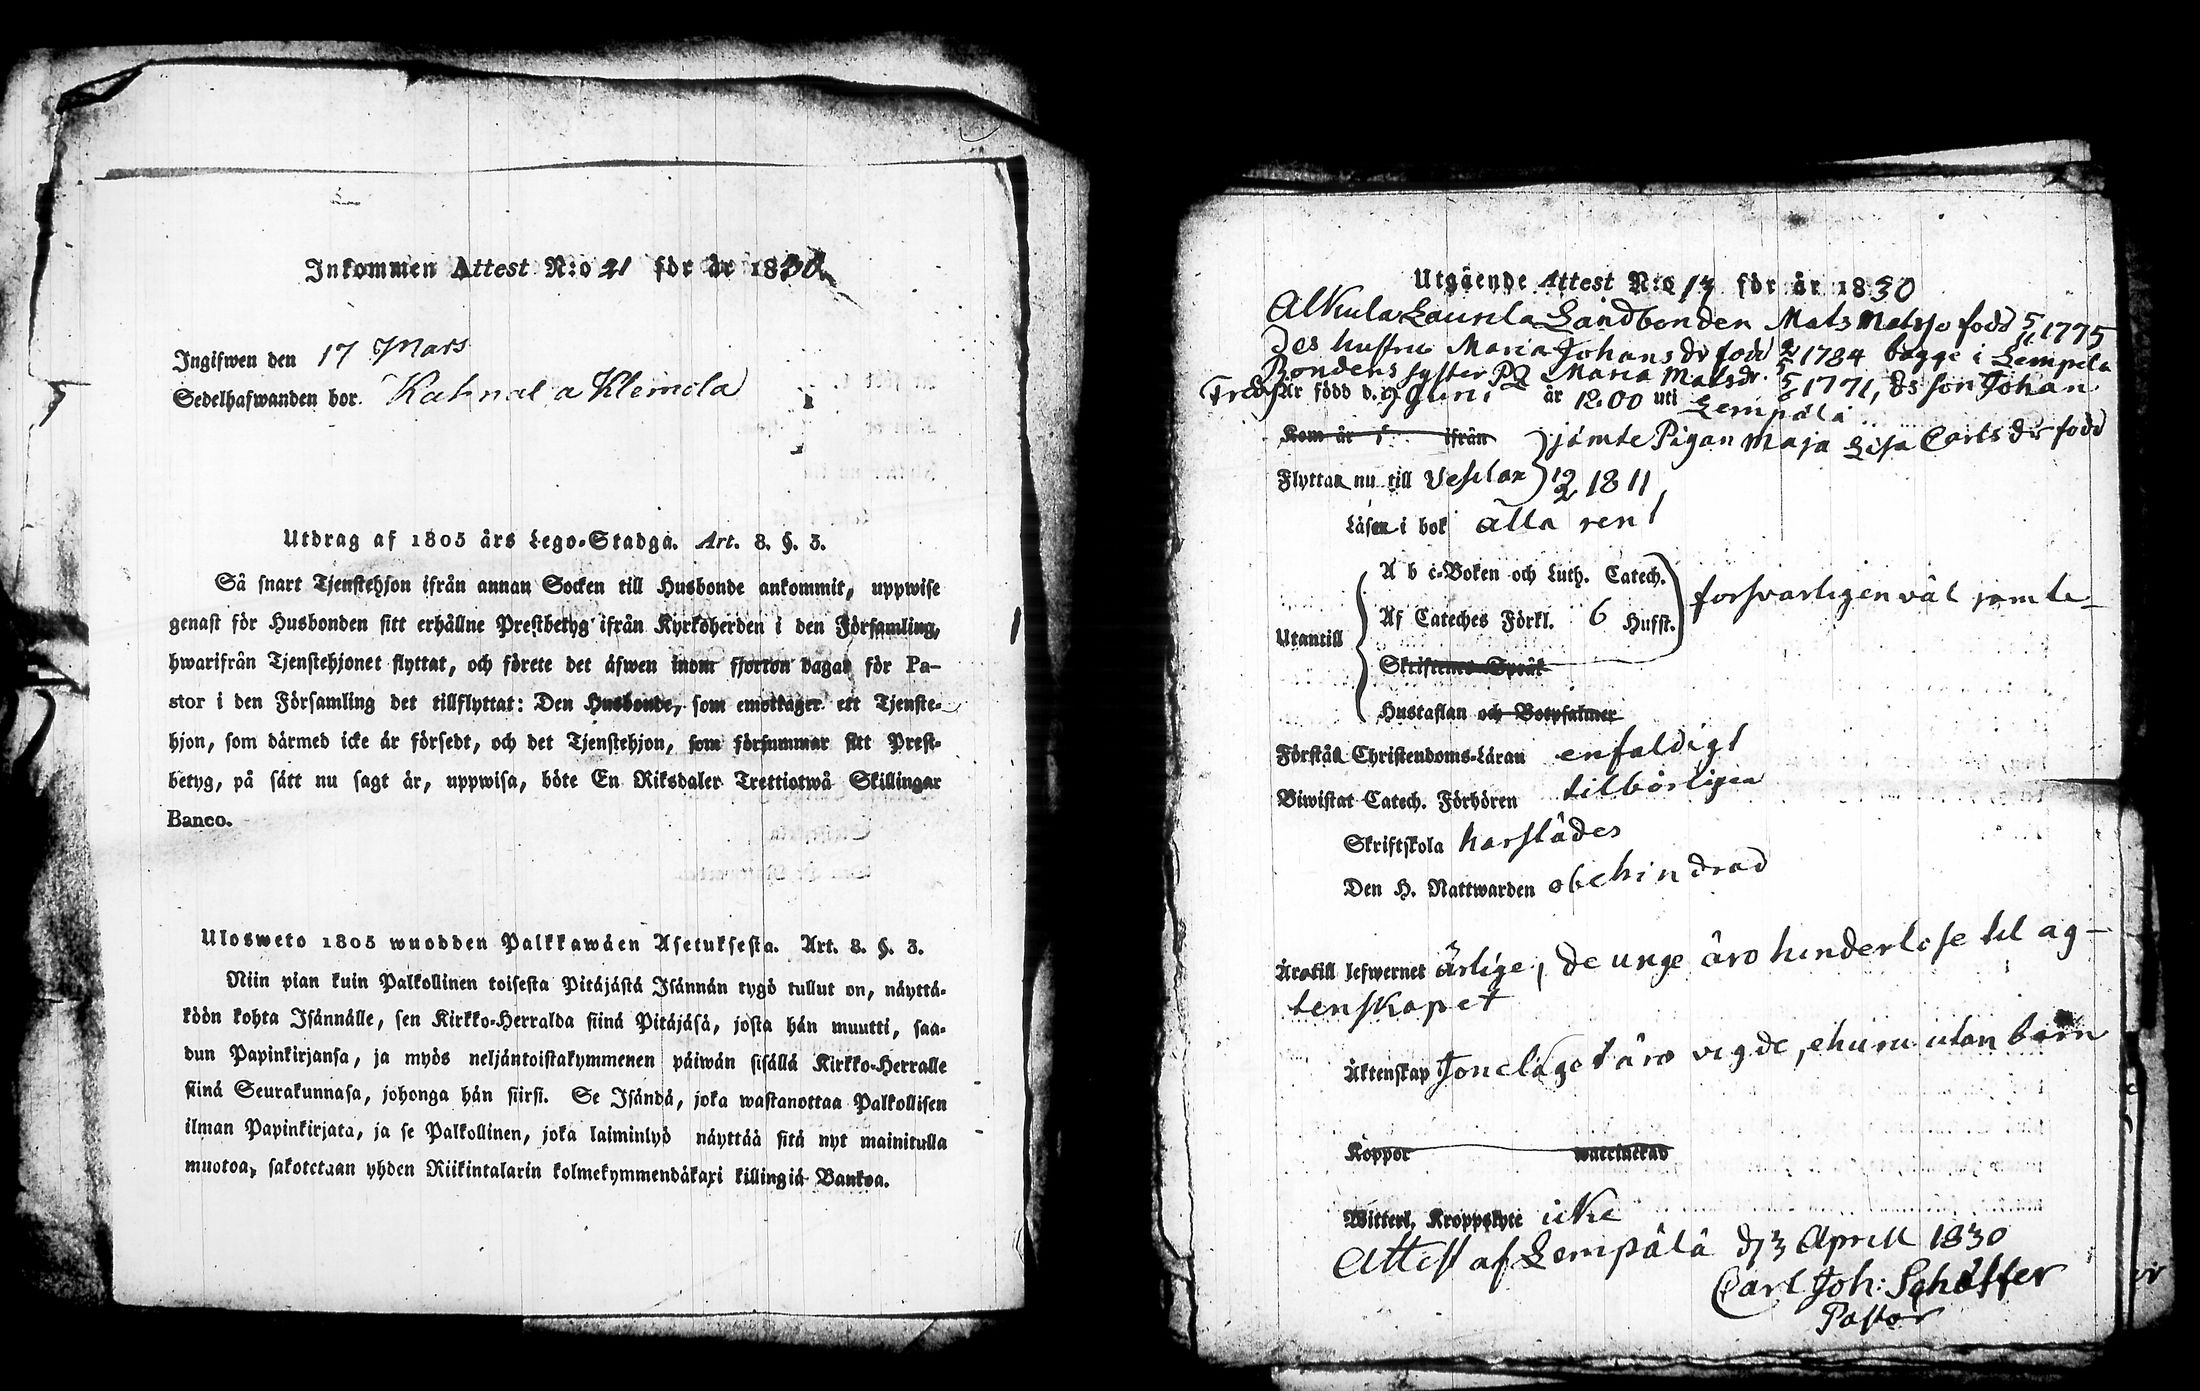 Inkommen Attest N:o 21 för år 1830
Ingifwen den 17 Mars
Sedelhafwanden bor Klemola
Utdrag af 1805 års Lego-Stadga. Art. 8. §. 3.
Så snart Tjenstehjon ifrån annan Socken till Husbonde ankommit, uppwise
genast för Husbonden sitt erhållne Prestbetyg ifrån Kyrkoherden i den Församling,
hwarifrån Tjenstehjonet flyttat, och förete det äfwen inom fjorton dagar för Pa-
stor i den Församling det tillflyttat: Den Husbonde, som emottager ett Tjenste-
hjon, som därmed icke är försedt, och det Tjenstehjon, som försummar sitt Prest-
betyg, på sätt nu sagt är, uppwisa, böte En Riksdaler Trettiotwå Skillingar
Banco.
Ulosweto 1805 wuodden Palkkawäen Asetuksesta. Art. 8. §. 3.
Niin pian kuin Palkollinen toisesta Pitäjästä Isännän tygö tullut on, näyttä-
köön kohta Isännälle, sen Kirkko-Herralda siinä Pitäjäsä, josta hän muutti, saa-
dun Papinkirjansa, ja myös neljäntoistakymmenen päiwän sisällä Kirkko-Herralle
siinä Seurakunnasa, johonga hän siirsi. Se Isändä, joka wastanottaa Palkollisen
ilman Papinkirjata, ja se Palkollinen, joka laiminlyö näyttää sitä nyt mainitulla
muotoa, sakotetaan yhden Riikintalarin kolmekymmendäkaxi killingiä Bankoa.
Utgående Attest N:o för år 1830
Alkula Laurila Landbonden Mats Matsso född 5/ 1775
Des hustru Maria Johans dr född 1784 bägge i Lempälä
Bondens syster Maria Matsdr. 1771, ds son Johan
är född d. 9 Juni år 1800 uti Lempälä
Kom år ifrån jämte Pigan Maja Lisa Carls dr född
Flyttar nu till Vesilax 12/2 1811,
Läsen i bok alla rent
A b c-Boken och Luth. Catech.
Utantill Af Cateches Förkl. 6 Husst. försvarligen väl jämte
Skriftenes Språk
Hustaflan och Botpsalmer
Förstå Christendoms-Läran enfaldigt
Biwistat Catech. Förhören tilbörligen
Skriftskola härstädes
Den H. Nattwarden obehindrad
Äro till lefwernet ärlige, de unge äro hinderlöse til äg-
tenskapet
Äktenskap äro vigde, ehuru utan barn
Koppor waccinerad
Witterl. Kroppslyte icke
Attest af Lempälä d. 3 April 1830
Carl Joh: Schäffer
Pastor